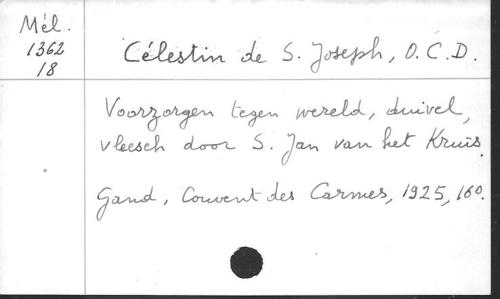 Mél.
1362
18
Célestin de S. Joseph, O.C.D.
Voorzorgen tegen wereld, duivel,
vleesch door S. Jan van het Kruis.
Gand, Couvent des Carmes, 1925, 16o.